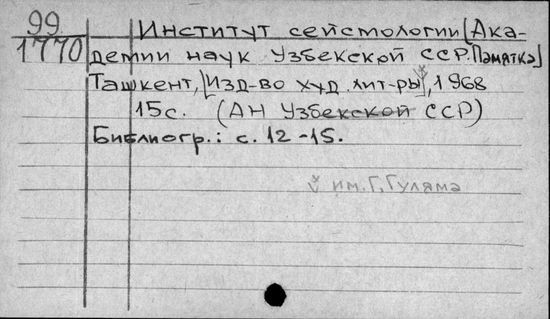 99
1770
Институт сейсмологии [Ака-
демии наук Узбекской ССР. Памятка]
Ташкент, [Изд-во худ. лит-ры]ˇ, 1968
15с. (АН Узбекской ССР)
Библиогр.: с. 12-15.
ˇ им. Г. Гуляма